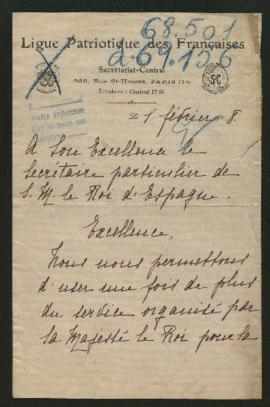 68.501
2.69.156
Ligue Patriotique des Françaises
Secrétariat-Central
368, Rue St-Honoré, PARIS
Téléphone: Central
SC
1 février 8.
A Son Excellence le
Secrétaire particulier de
S. M. le Roi d'Espagne.
Excellence,
Nous nous permettons
d'user une fois de plus
du service organisé par
sa Majesté le Roi pour la